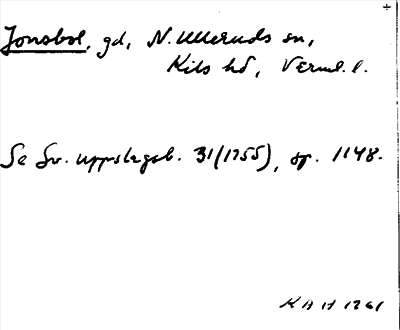 Jonsbol, gd, N. Ulleruds sn,
Kils hd, Värml. l.
Se Sv. uppslagsb. 31 (1955), sp. 1148.
KAH 1961